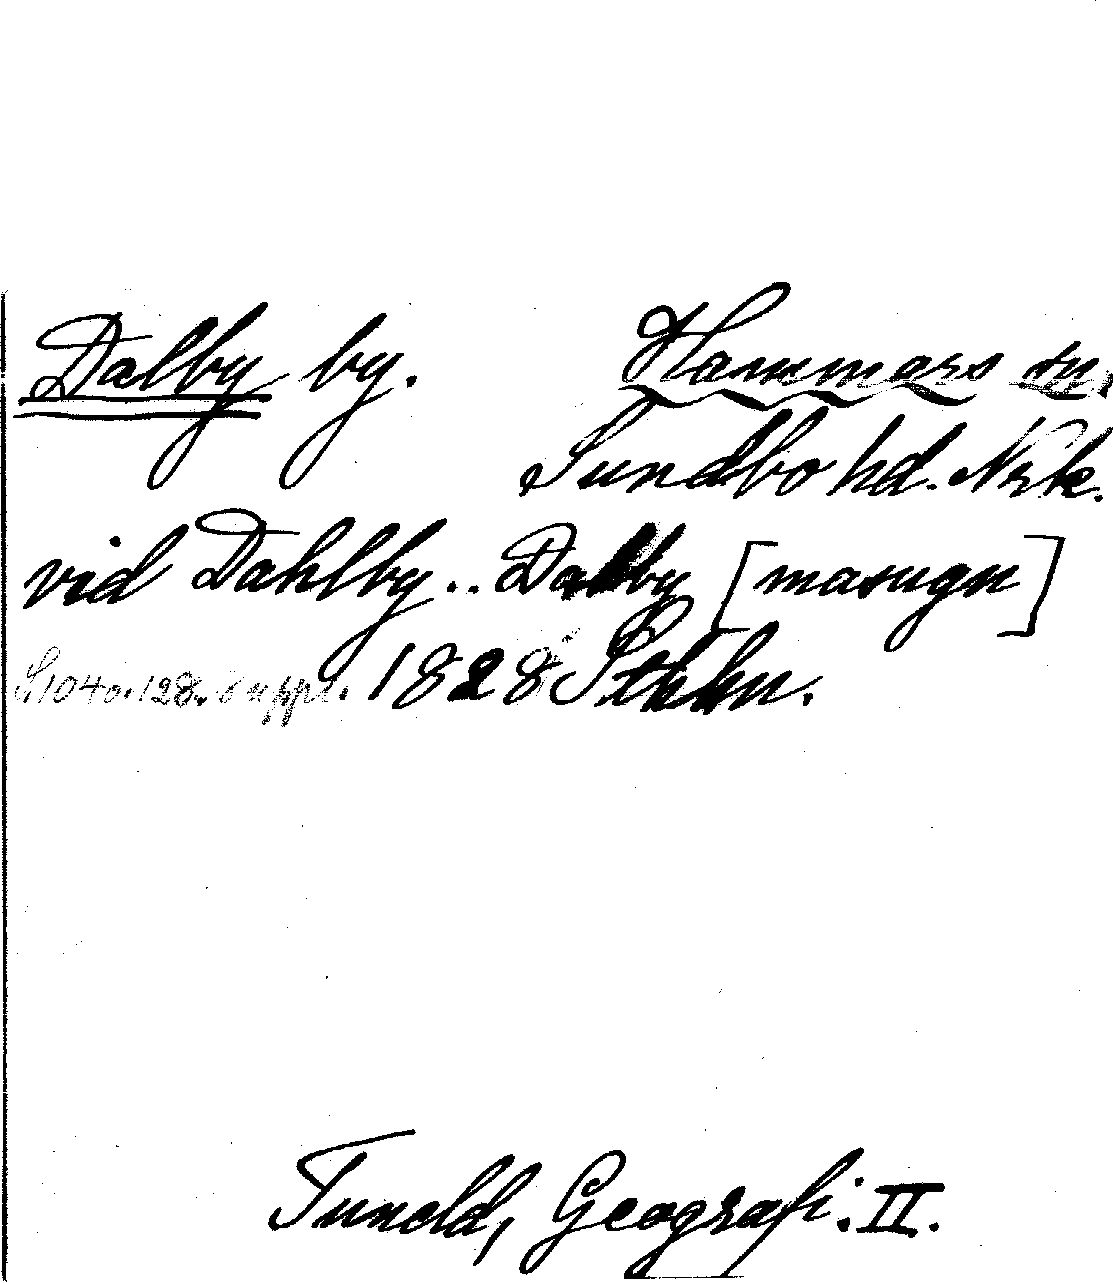 Dalby by. Hammars sn,
Sundbo hd. Nrk.
vid Dahlby.. Dalby [masugn]
S. 104 o. 128. Suppl. 1828 Sthlm.
Tuneld, Geografi. II.